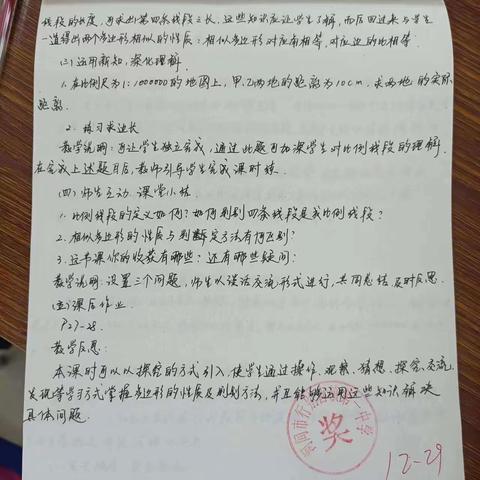 线段的长度,再求出第四条线段之长,这些知识应让学生了解,而后回过来与学生
一道得出两个多边形相似的性质:相似多边形对应角相等,对应边的比相等.
(三)运用新知,深化理解
1.在比例尺为1:1000000的地图上,甲.乙两地的距离为10cm,求两地的实际
距离.
2.练习求边长
教学说明:可让学生独立完成,通过此题可加深学生对比例线段的理解.
在完成上述题目后,教师引导学生完成课时练.
(四)师生互动.课堂小结
1.比例线段的定义如何?如何判别四条线段是成比例线段?
2.相似多边形的性质与判定方法有何区别?
3.这节课你的收获有哪些?还有哪些疑问?
教学说明:设置三个问题,师生以谈话交流形式进行,共同总结.及时反思.
(五)课后作业.
P27-28.
教学反思:
本课时可以以探究的方式引入,使学生通过操作、观察、猜想、探究、交流、
发现等学习方式掌握多边形的性质及判别方法,并且能够运用这些知识解决
具体问题.
奖
12-29